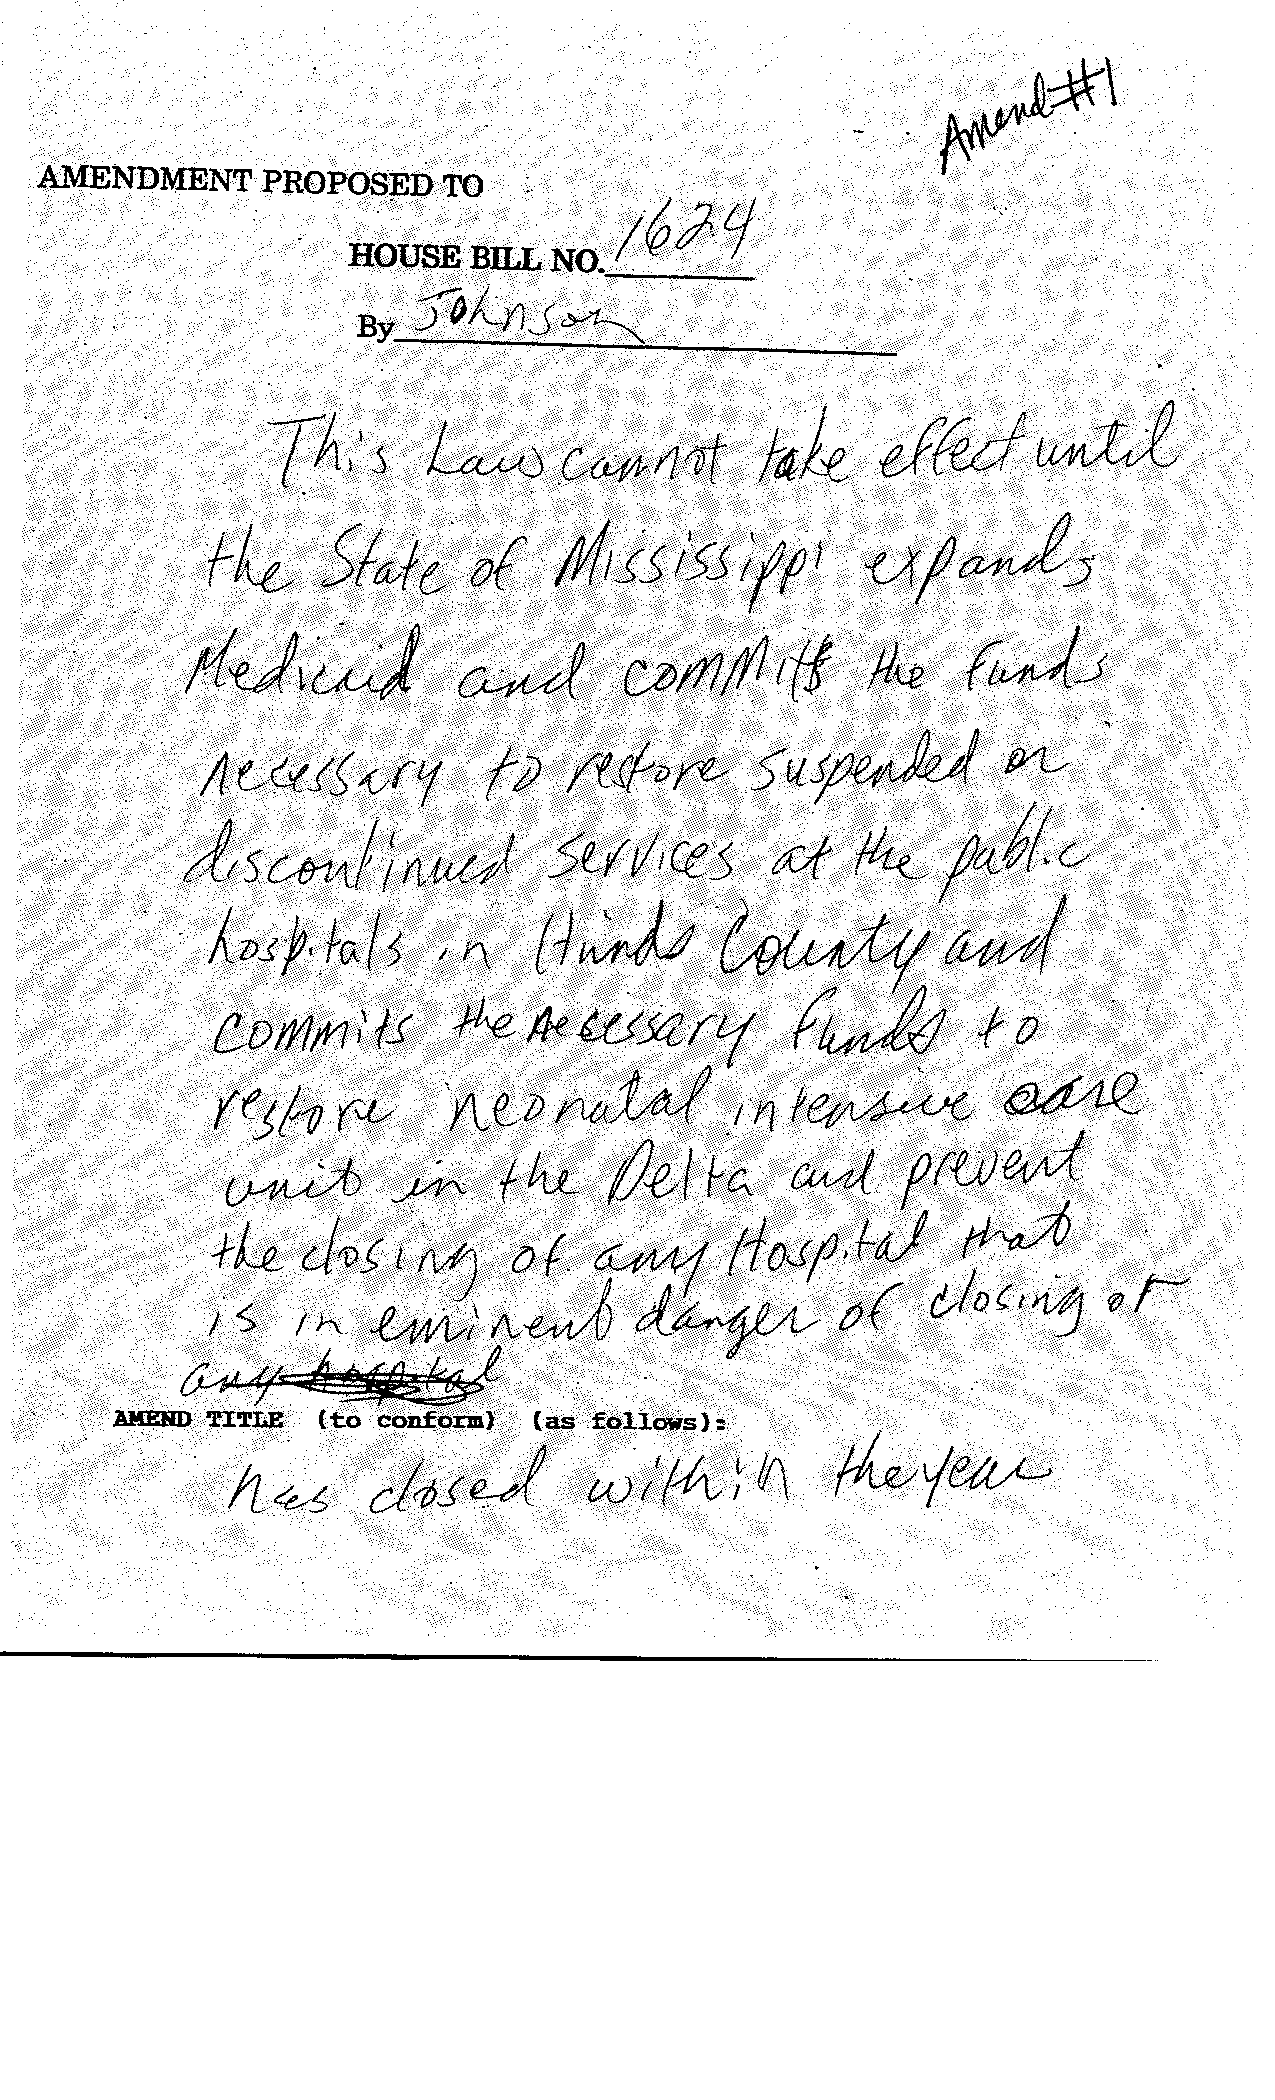 Amend #1
AMENDMENT PROPOSED TO
HOUSE BILL NO. 1624
By Johnson
This Law cannot take effect until
the State of Mississippi expands
Medicaid and commits the funds
necessary to restore suspended or
discontinued services at the public
hospitals in Hinds County and
commits the necessary funds to
restore neonatal intensive care
unit in the Delta and prevent
the closing of any Hospital that
is in eminent danger of closing or
any hospital
AMEND TITLE (to conform) (as follows):
has closed within the year